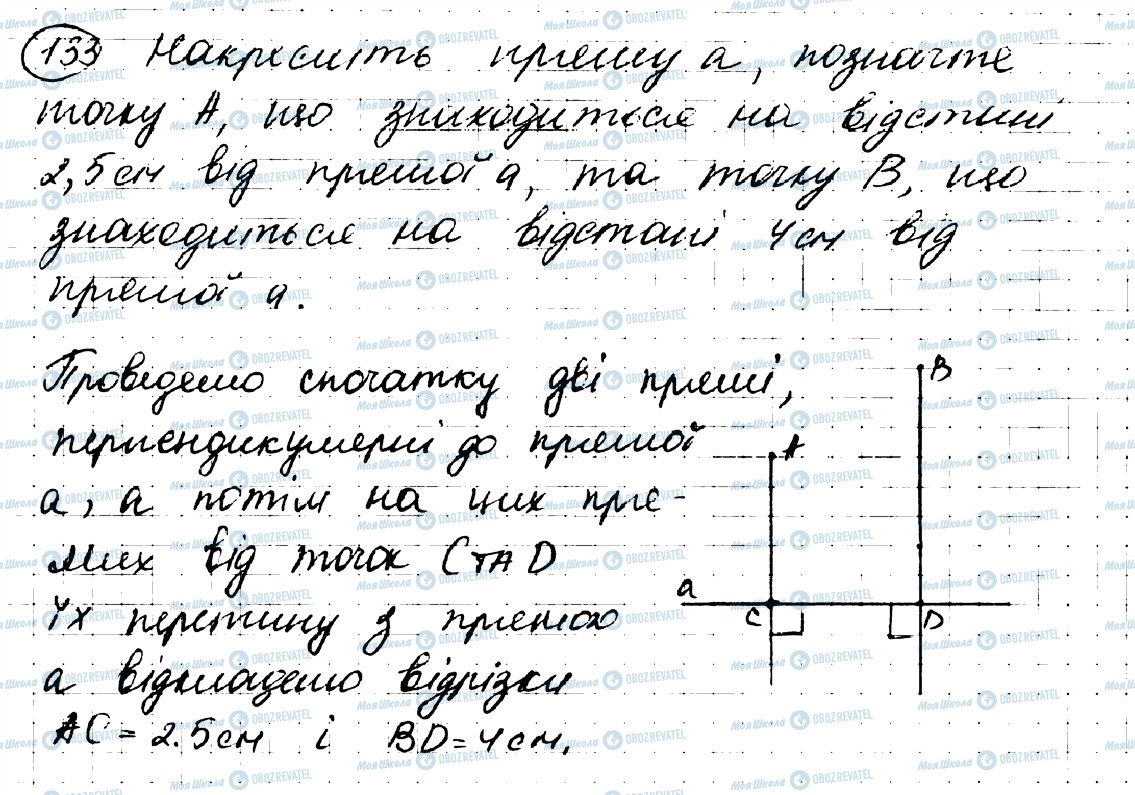 133 Накресліть пряму а, позначте
точку А, що знаходиться на відстані
2,5 см від прямої а, та точку В, що
знаходиться на відстані 4 см від
прямої а.
Проведемо спочатку дві прямі,
перпендикулярні до прямої
а, а потім на цих пря-
мих від точок С та D
їх перетину з прямою
а відкладемо відрізки
АС = 2.5 см і BD = 4 см.
В
А
а
С
D